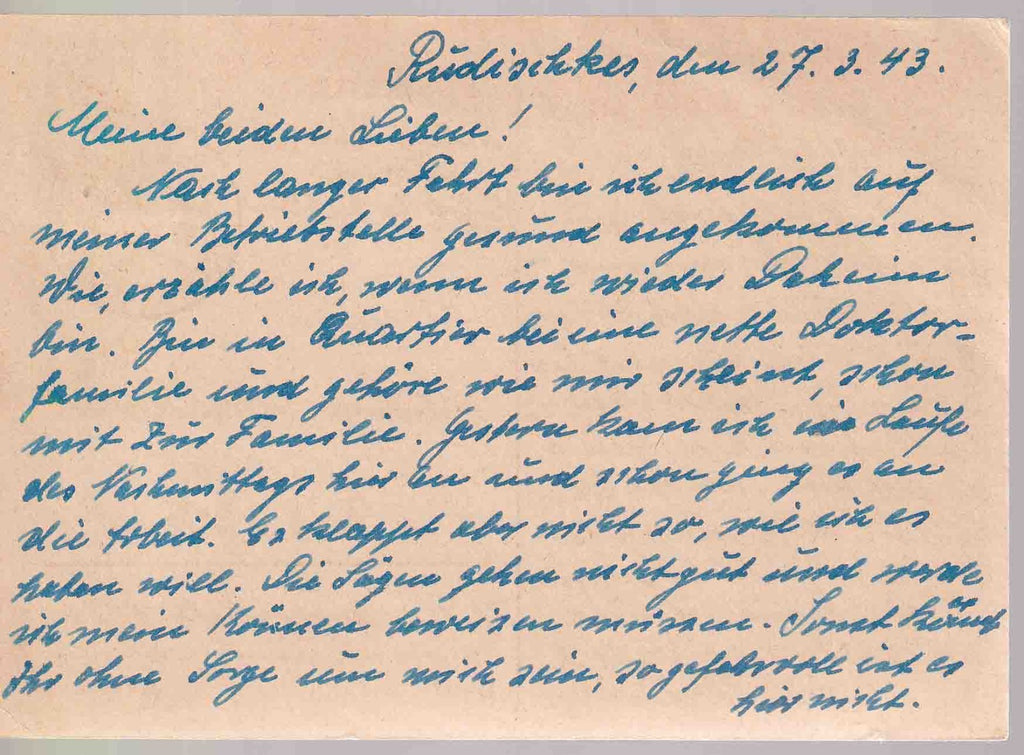 Rudischkes, den 27. 3. 43.
Meine beiden Lieben!
Nach langer Fahrt bin ich endlich auf
meiner Betriebstelle gesund angekommen.
Wie, erzähle ich, wenn ich wieder Daheim
bin. Bin in Quartier bei eine nette Doktor-
familie und gehöre wie mir scheint, schon
mit zur Familie. Gestern kam ich im Laufe
des Nachmittags hier an und schon ging es an
die Arbeit. Es klappt aber nicht so, wie ich es
haben will. Die Sägen gehen nicht gut und werde
ich mein Können beweisen müssen. Sonst könnt
Ihr ohne Sorge um mich sein, so gefahrvoll ist es
hier nicht.